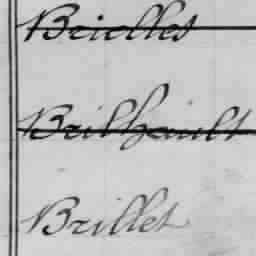 Brielles
Brilhault
Brillet